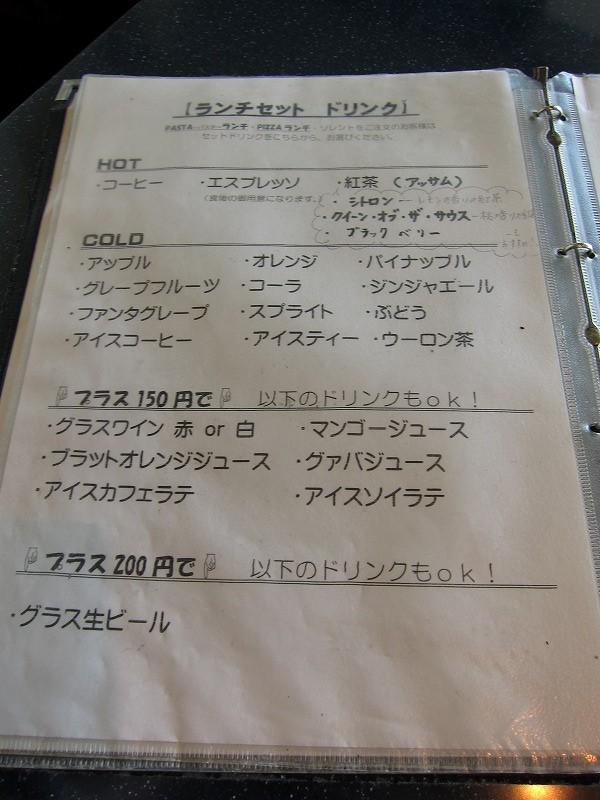 【ランチセット ドリンク】
PASTAランチ・PIZZAランチ・ソレントをご注文のお客様は
セットドリンクをこちらから、お選びください。
HOT
・コーヒー ・エスプレッソ ・紅茶（アッサム）
(食後の御用意になります。)
・シトロン ー レモンの香りの紅茶
・クイーン・オブ・ザ・サウス ー 桃の香りの
・ブラックベリー
おすすめ!
COLD
・アップル ・オレンジ ・パイナップル
・グレープフルーツ ・コーラ ・ジンジャエール
・ファンタグレープ ・スプライト ・ぶどう
・アイスコーヒー ・アイスティー ・ウーロン茶
プラス150円で 以下のドリンクもok！
・グラスワイン 赤 or 白 ・マンゴージュース
・ブラットオレンジジュース ・グァバジュース
・アイスカフェラテ ・アイスソイラテ
プラス200円で 以下のドリンクもok！
・グラス生ビール